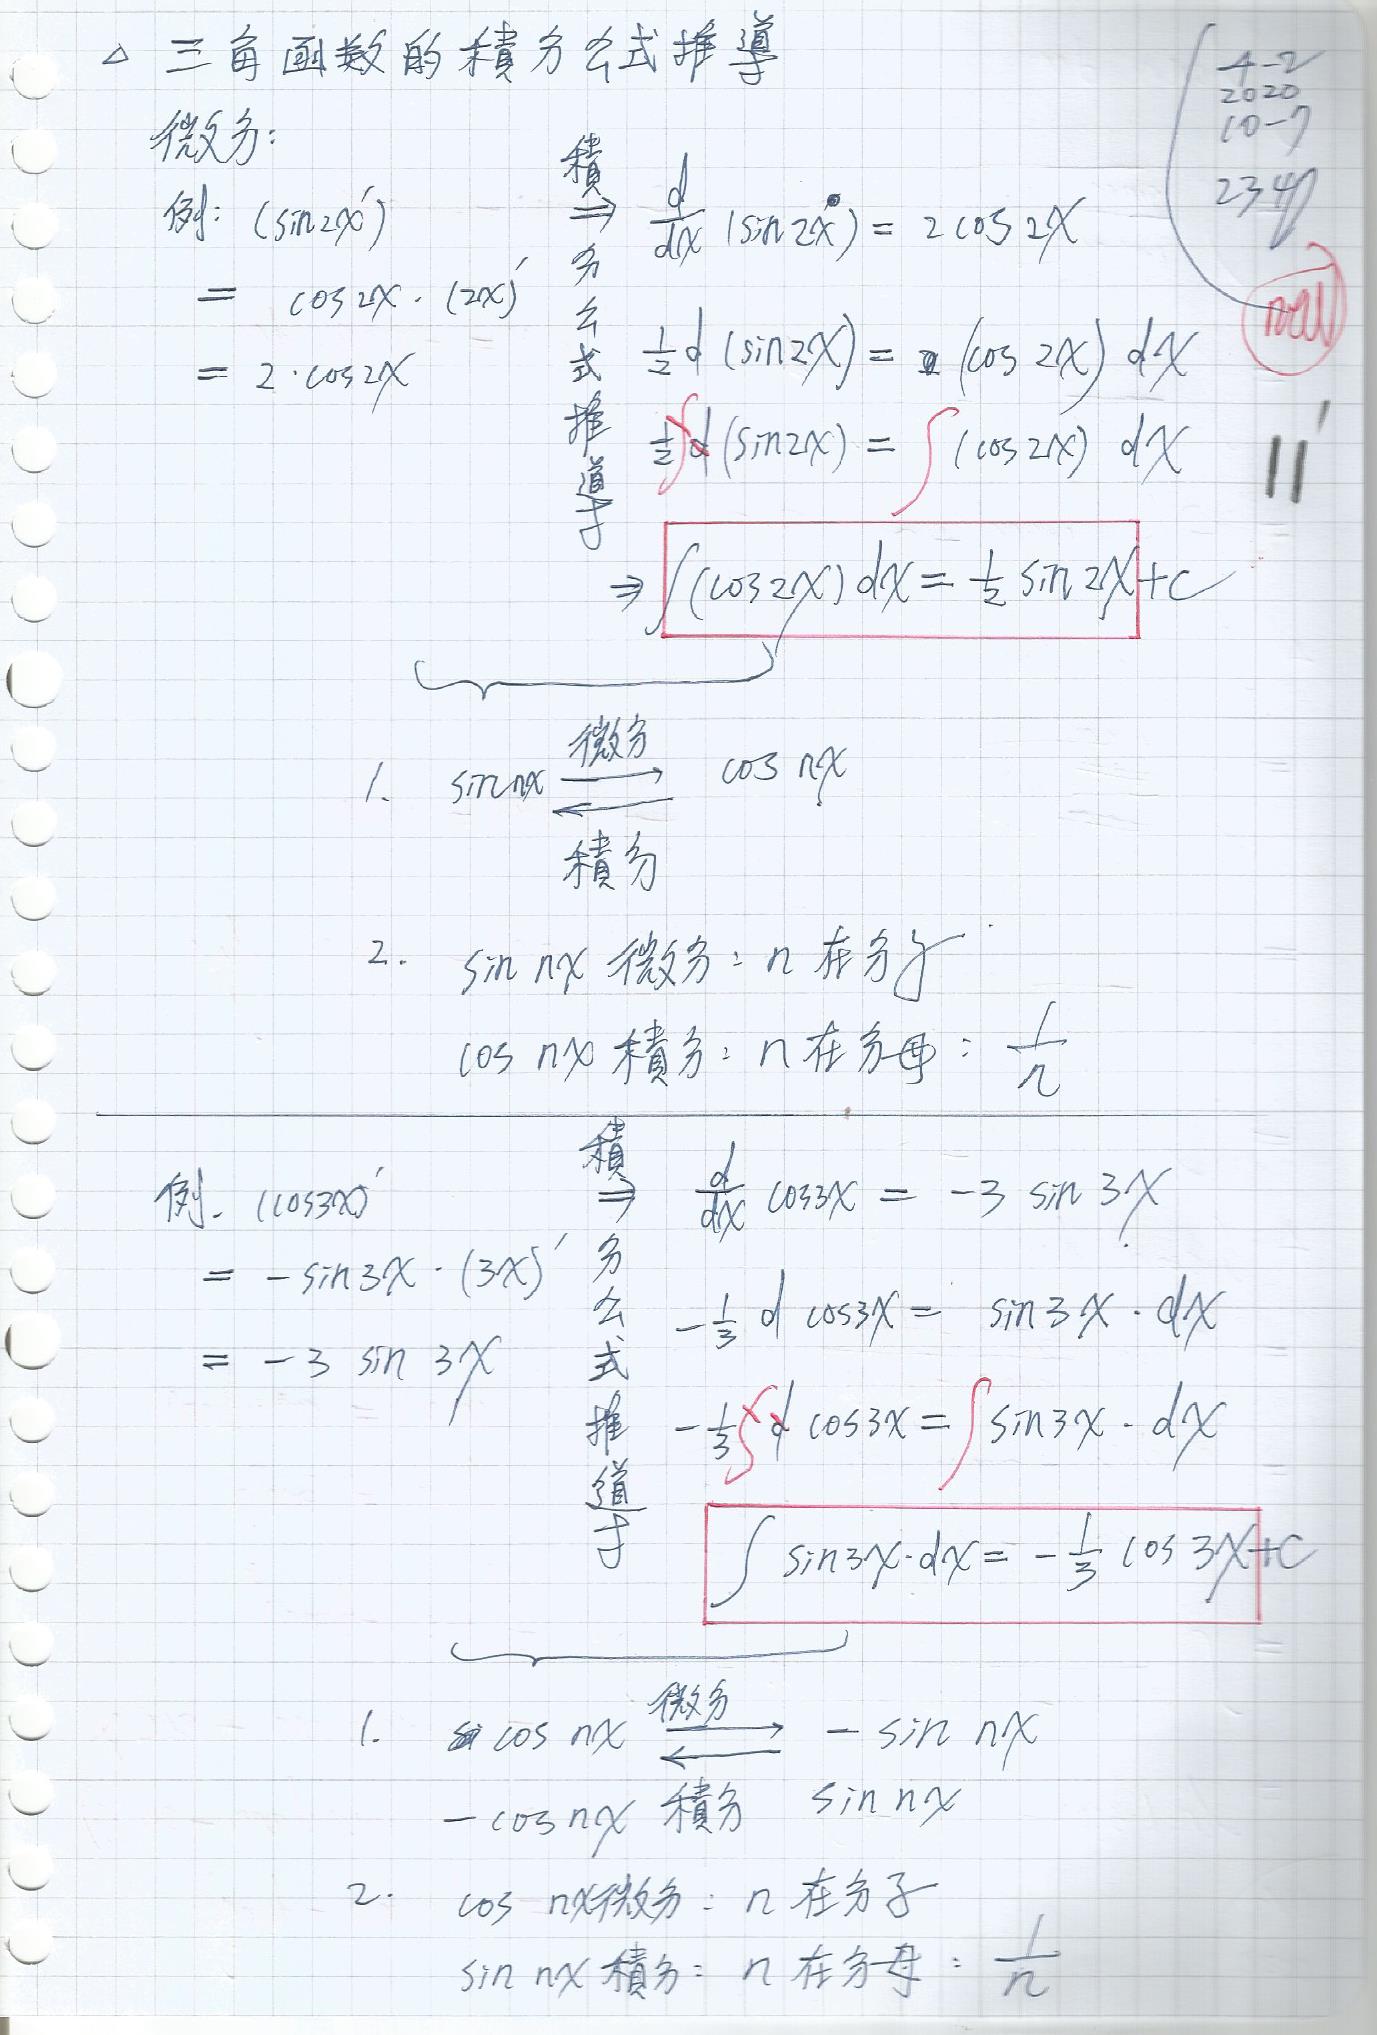 △ 三角函数的積分公式推導
4-2
2020
10-7
2347
new
11'
微分:
例: (sin2x')
= cos2x · (2x)'
= 2·cos2x
積分公式推導
⇒ d/dx (sin2x) = 2cos2x
1/2 d (sin2x) = (cos 2x) dx
1/2 ∫d (sin2x) = ∫ (cos 2x) dx
⇒ ∫(cos2x) dx = 1/2 sin 2x + c
1. sin nx ⇄ cos nx
微分
積分
2. sin nx 微分: n 在分子
cos nx 積分: n 在分母: 1/n
例. (cos3x)'
= -sin3x · (3x)'
= -3 sin 3x
積分公式推導
⇒ d/dx cos3x = -3 sin 3x
-1/3 d cos3x = sin3x · dx
-1/3 ∫d cos3x = ∫ sin3x · dx
∫ sin3x·dx = -1/3 cos3x + C
1. cos nx ⇄ - sin nx
微分
- cos nx 積分 sin nx
2. cos nx微分: n 在分子
sin nx 積分: n 在分母: 1/n